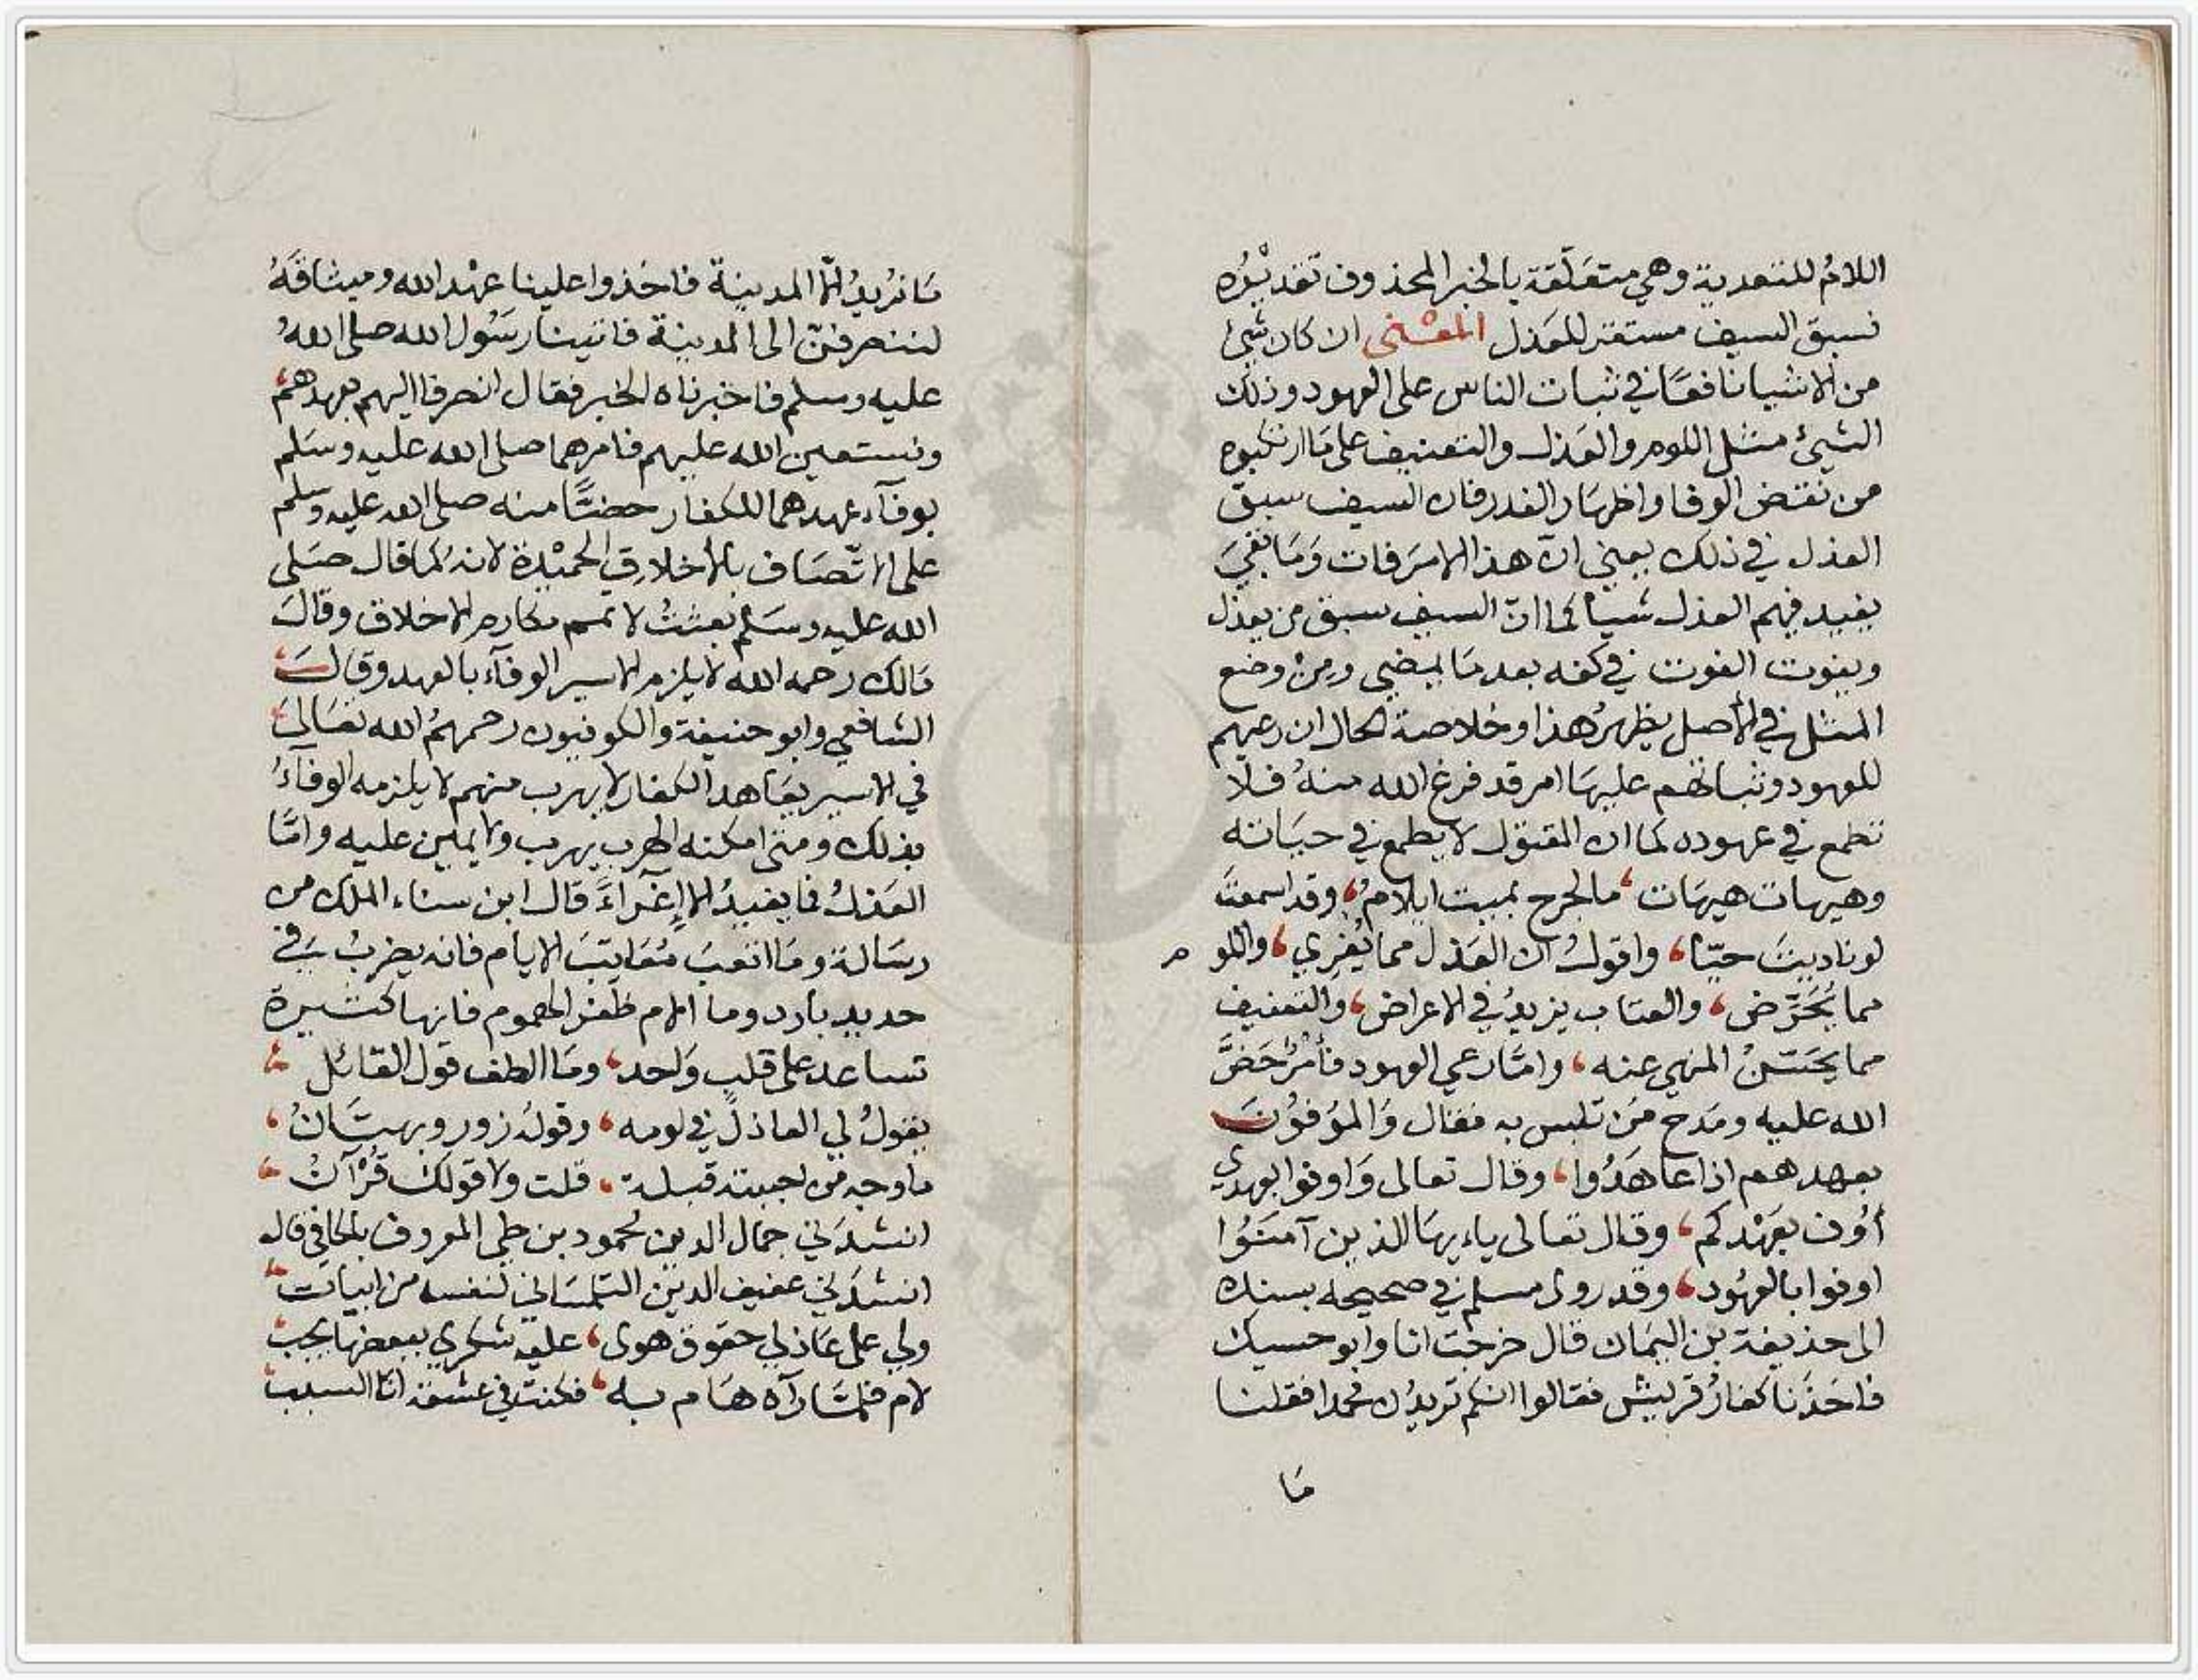 اللامُ للتعدية وهي متعلّقة بالخبر المحذوف تقديْرُه
نسبق السيف مستقر للعَذل المعْنى ان كان شيئ
من الاشيا نافعًا في ثبات الناس على العهود وذلك
الشيئ مثل اللوم والعَذل والتعنيف على مَا ارتكبوه
من نقض الوفا واظهار الغدر فان السيف سبق
العذل في ذلك يعني انّ هذا الامرَ فات وَمَا بقيَ
يفيد فيهم العذل شيأ كما انّ السيف سبق من يعذل
ويفوت الفوت في كفه بعد مَا يمضي ومِنْ وضع
المثل في الأصل يظهرُ هذا وخلاصة الحال ان رعيهم
للعهود وثباتهم عليهَا امر قد فرغ الله منهُ فلا
تطمع في عهوده كما ان المقتول لا يطمع في حيَاته
وهيهات هيهَات، ما لجرح بميت ايلامُ، وقد اسمعتَ
لو ناديتَ حيّا، واقولُ ان العَذل مما يُغري، واللوم
مما يُحَرّض، والعتاب يزيدُ في الاعراض، والتعنيف
مما يحَسّنُ المنهي عنه، وامَّا رعي العهود فأمْرٌ حَضَّ
الله عليه ومَدح مَن تلبس به فقال وَالموُفوُنَ
بعهدهم اذا عاهَدُوا، وقال تعالى وَاوفوا بعهدي
أُوف بعَهْدكم، وقال تعالى ياءيهَا الذين آمنَوُا
اوفوا بالعهُود، وقد روى مسلم في صحيحه بسنده
الى حذيفة بن اليمَان قال خرجت انا وابو حسيل
فاخَذَنا كفارُ قريش فقالوا انكم تريدُن محمدا فقلنا
مَا
مَا نُريدُ الّا المدينة فاخَذوا علينا عهْد الله وميثاقَهُ
لننصرفنّ الى المدينة فاتينا رسَوُل الله صلى اللهُ
عليه وسلم فاخبرناه الخبر فقال انصرفا اليهم بعهدهم،
ونستعين الله عليهم فامرهما صلى الله عليه وسَلم
بوفآء عهدهما للكفار حضًّا منه صلى الله عليه وسلم
على الاتّصَاف بالاخلاقِ الحميْدة لانهُ كما قال صَلى
الله عليه وسَلم بعثتُ لاتمم مكارم الاخلاق وقالَ
مَالك رحمه الله لا يلزم الاسير الوفآء بالعهد وقالَ،
الشافعي وابو حنيفة والكوفيون رحمهمُ الله تعَالىَ
في الاسير يعَاهد الكفار لا يهرب منهم لا يلزمه الوفآءُ
بذلك ومتى امكنه الهرب يهرب ولا يمين عليه وامَّا
العَذلُ فما يفيدُ الا إغرآءً قال ابن سناء الملك من
رسَالة ومَا اتعبَ مُعَاتبَ الايام فانه يضربُ في
حديد بارد وما الام ظفر الهموم فانها كثيرة
تساعد على قلبٍ وَاحد، ومَا الطف قول القائل
يقولُ لي العاذلُ في لومه، وقولهُ زور وبهتَانُ،
ما وجه من احببته قبلة، قلت ولا قولك قُرْآنُ،
انشدَني جمال الدين محمود بن طي المعروف بالحافي قال
انشدَني عفيف الدين التلمسَاني لنفسه من ابيات،
ولي على عَاذلي حقوق هوى، عليه شكري ببعضها يجبُ
لام فلمَّا رآه هَام به، فكنت في عشقه انا السبب